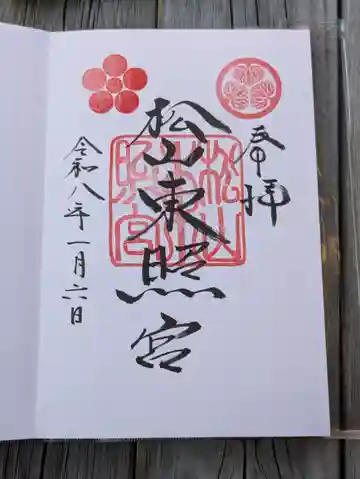 奉拝
松山東照宮
松山東照宮
令和八年一月六日